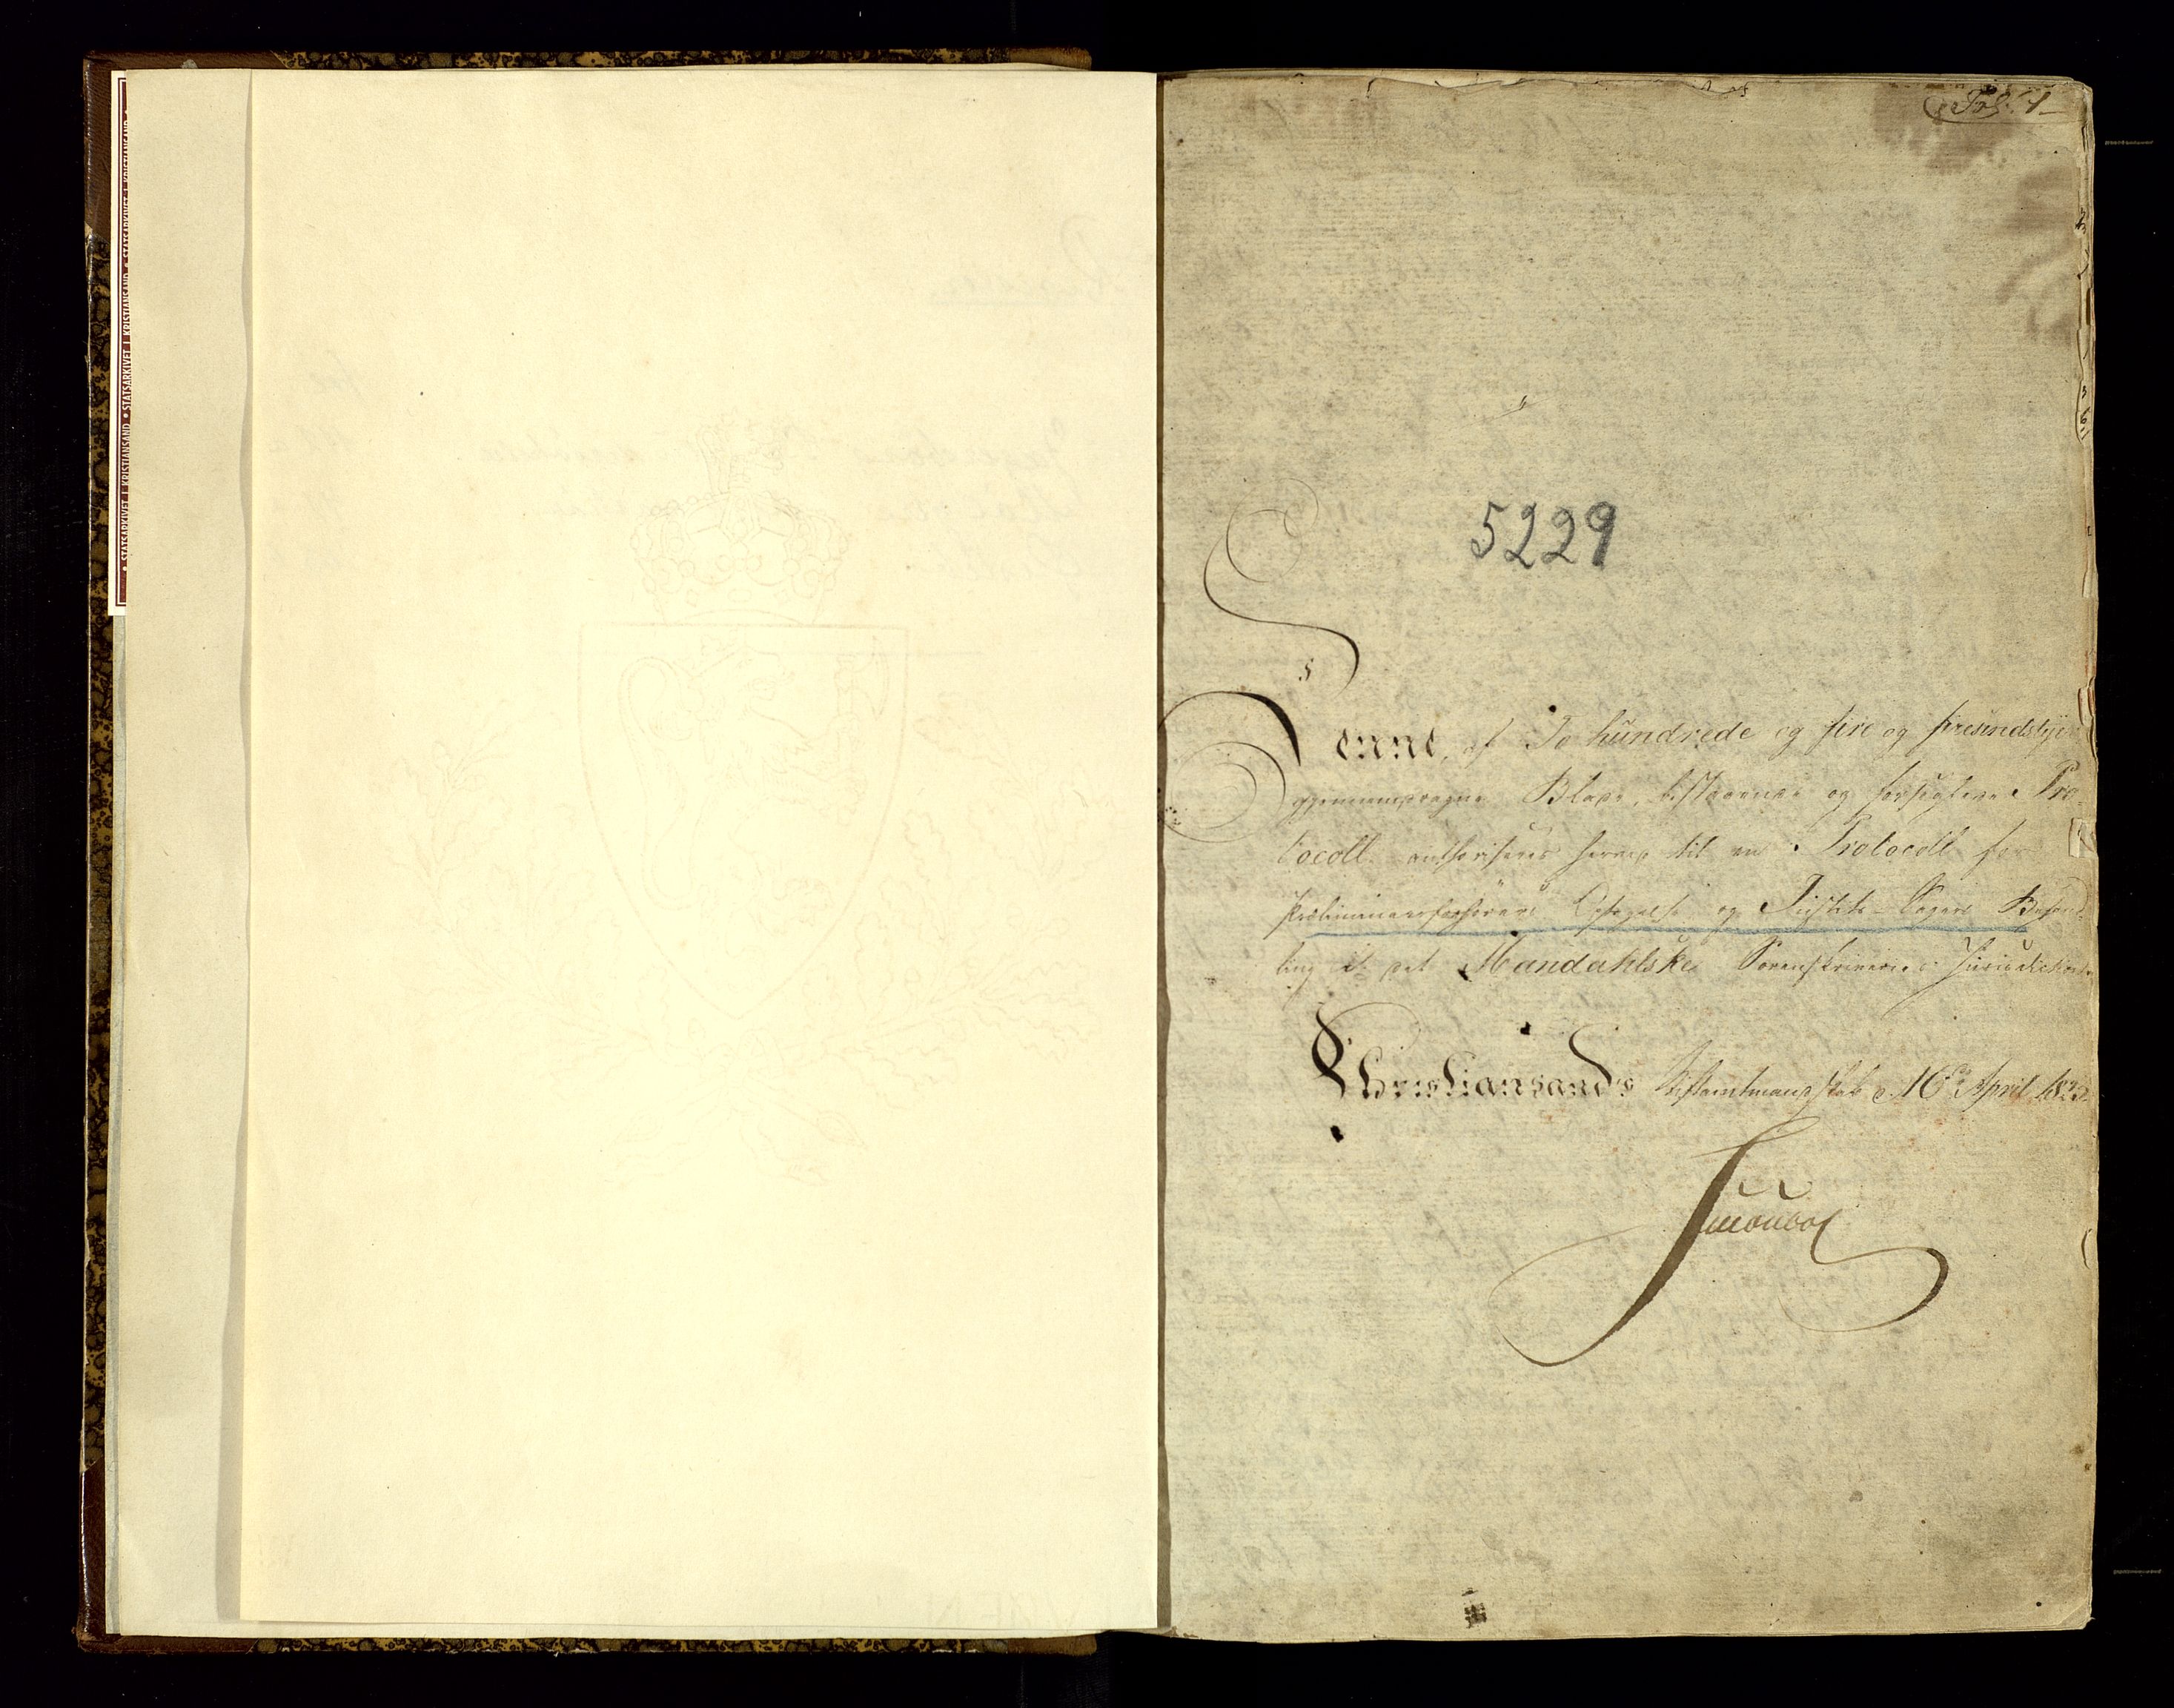 STATSARKIVET I KRISTIANSAND • STATSARKIVET I KRISTIANSAND • STATSARKIVET I KRISTIANSAND
Fol: 1
5229
Denne, af To hundrede og fire og firesindstyve
gjennemdragne Blade, bestaaende og forseglede Pro-
tocoll authoriseres herved til en Protocoll for
Præliminairforhørers Optagelse og Justits-Sagers Behand-
ling i det Mandahlske Sorenskriverie Jurisdiction
Christiansands Stiftamtmandskab d. 16de April